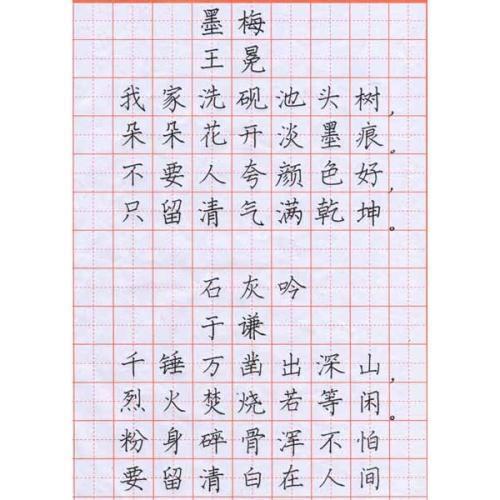 墨梅
王冕
我家洗砚池头树，
朵朵花开淡墨痕。
不要人夸颜色好，
只留清气满乾坤。
石灰吟
于谦
千锤万凿出深山，
烈火焚烧若等闲。
粉身碎骨浑不怕
要留清白在人间